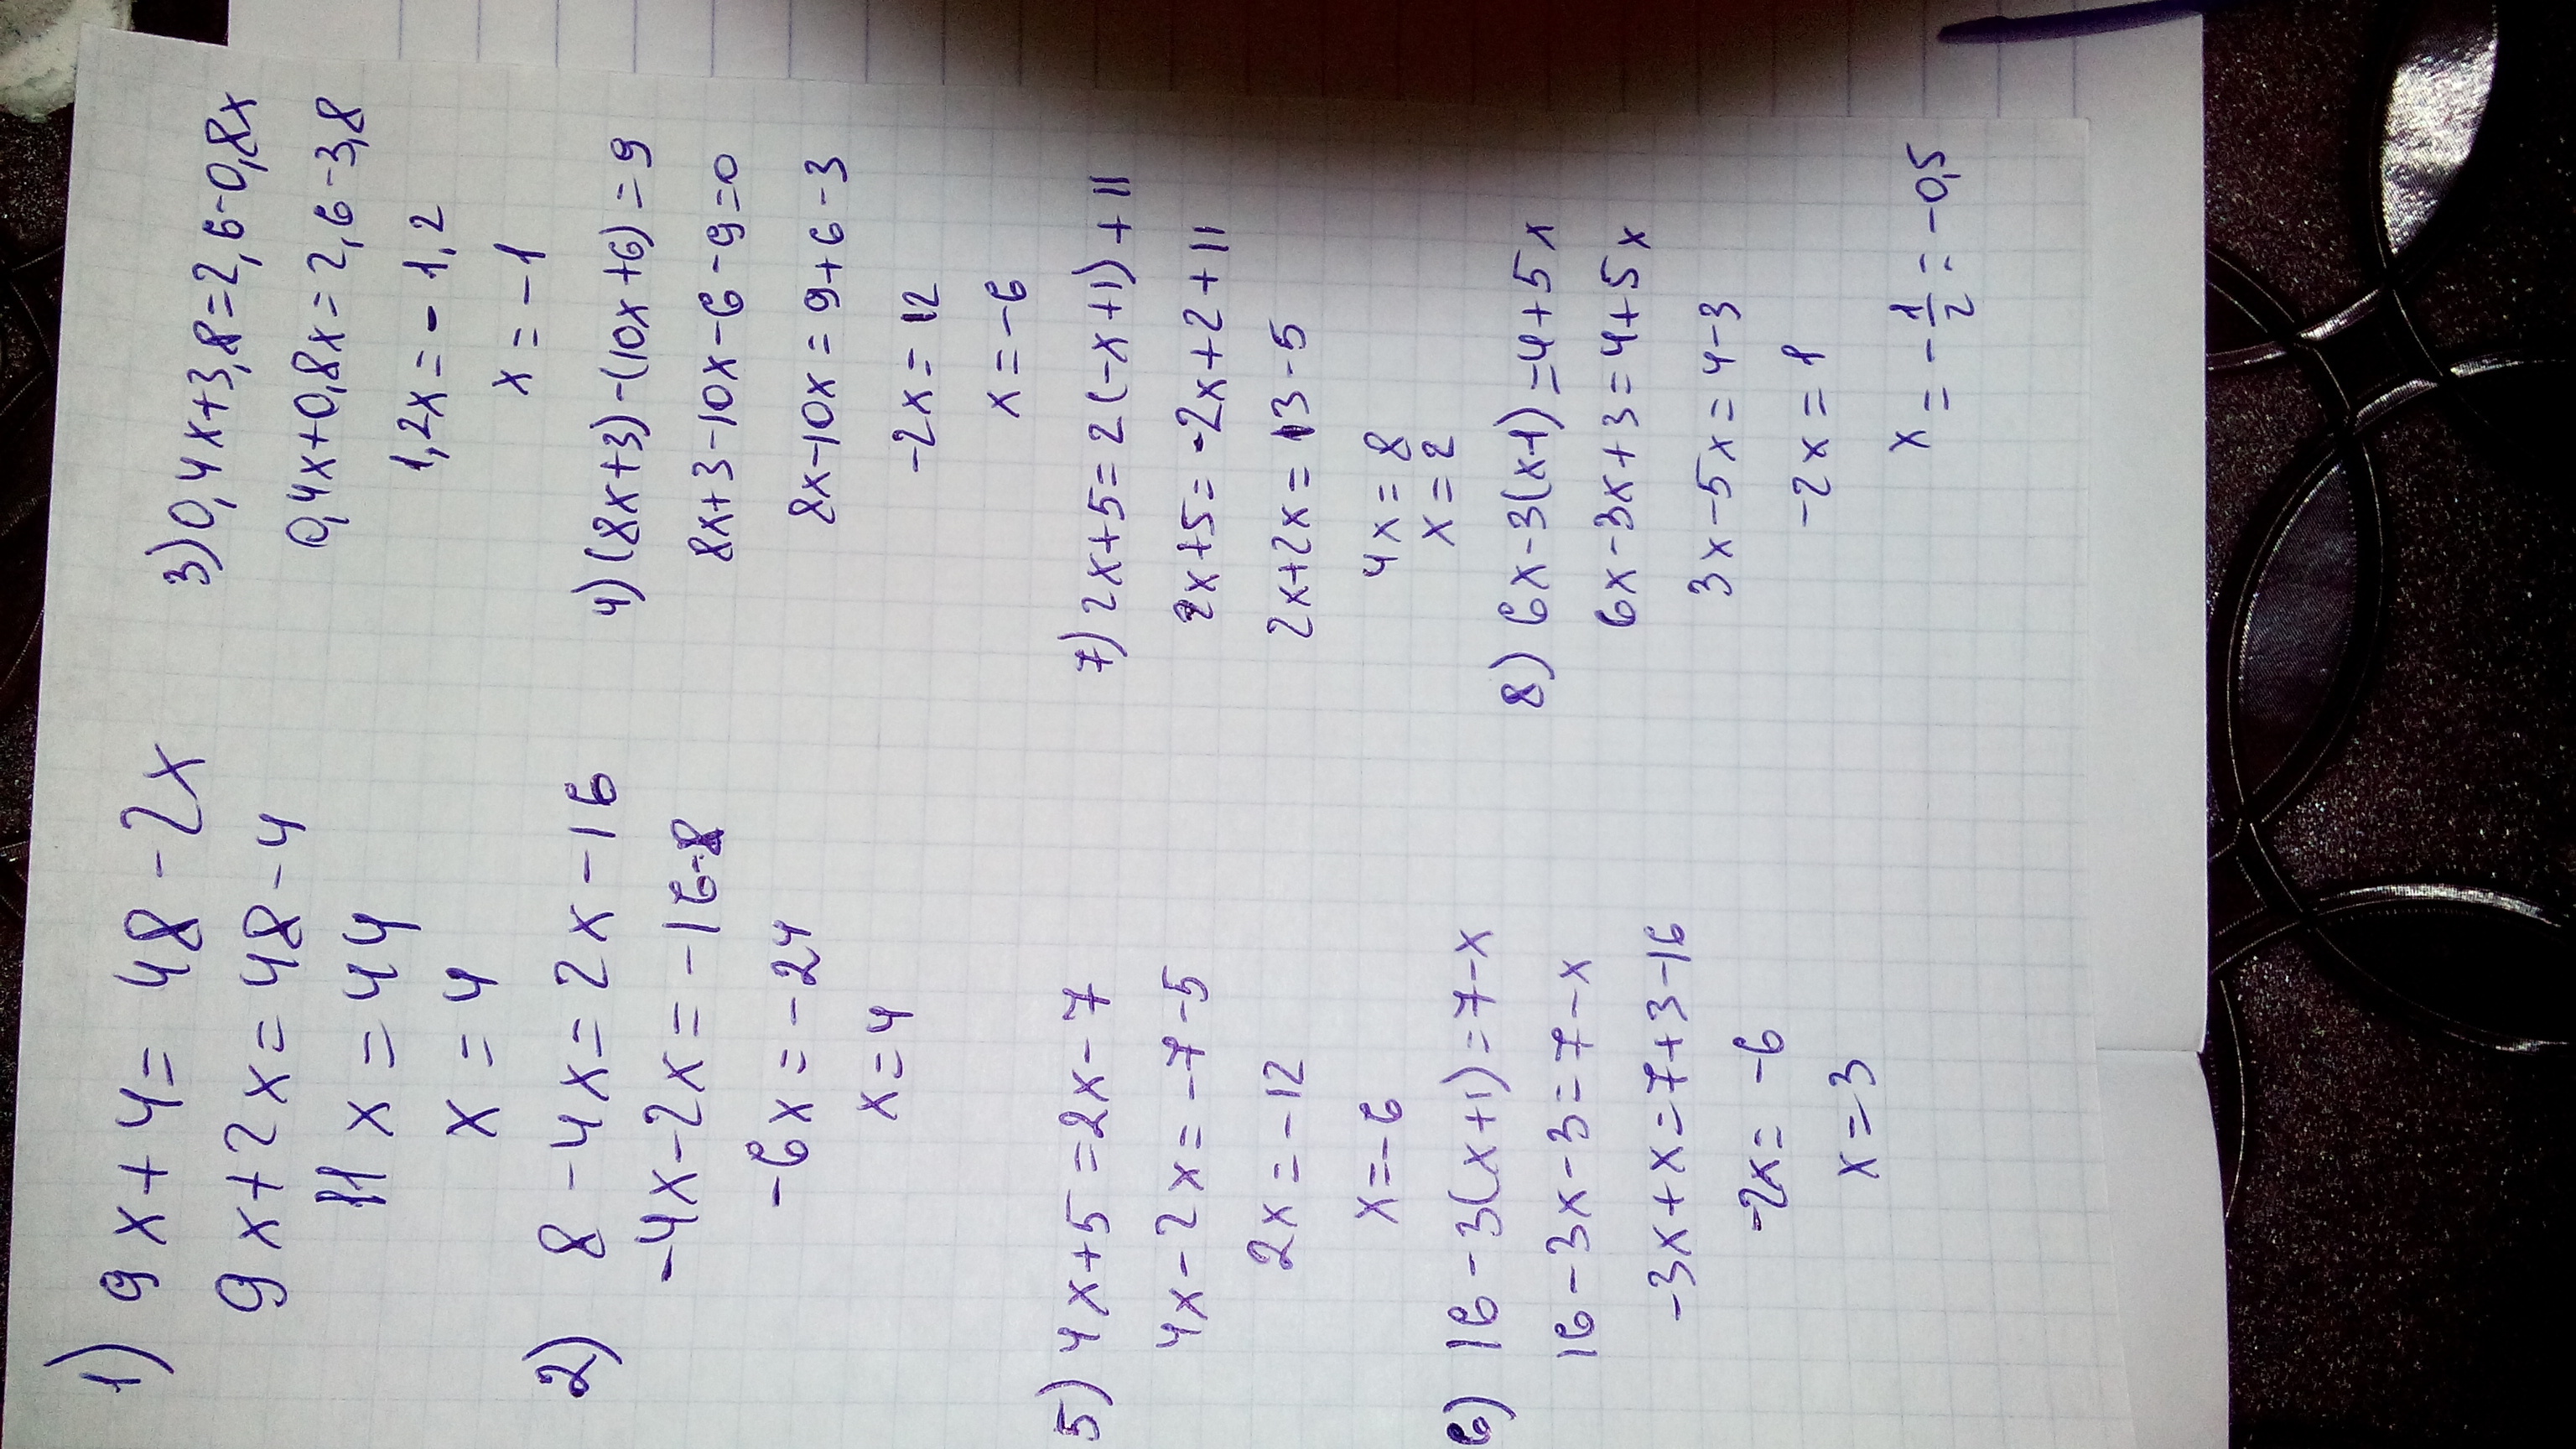 1) 9x+4=48-2x
9x+2x=48-4
11x=44
x=4
2) 8-4x=2x-16
-4x-2x=-16-8
-6x=-24
x=4
5) 4x+5=2x-7
4x-2x=-7-5
2x=-12
x=-6
6) 16-3(x+1)=7-x
16-3x-3=7-x
-3x+x=7+3-16
-2x=-6
x=3
3) 0,4x+3,8=2,6-0,8x
0,4x+0,8x=2,6-3,8
1,2x=-1,2
x=-1
4) (8x+3)-(10x+6)=9
8x+3-10x-6-9=0
8x-10x=9+6-3
-2x=12
x=-6
7) 2x+5=2(-x+1)+11
2x+5=-2x+2+11
2x+2x=13-5
4x=8
x=2
8) 6x-3(x-1)=4+5x
6x-3x+3=4+5x
3x-5x=4-3
-2x=1
x=-1/2=-0,5